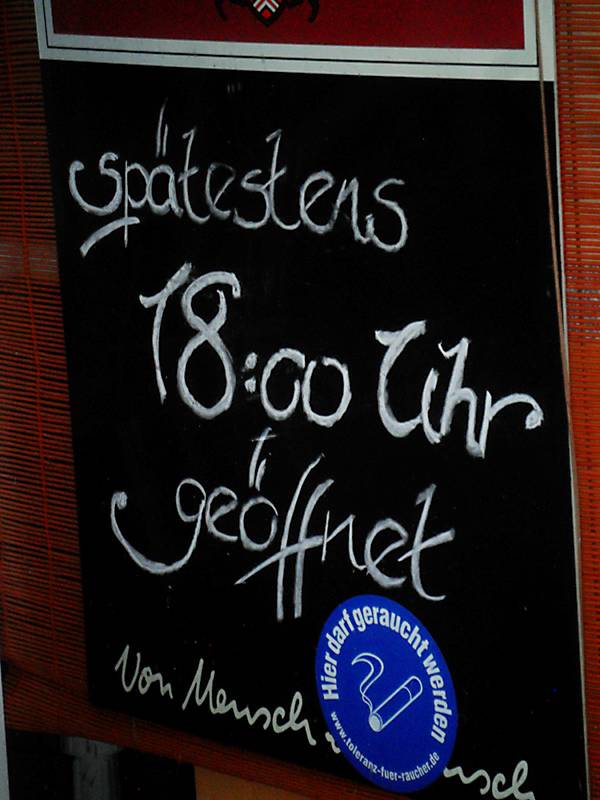 spätestens
18:00 Uhr
geöffnet
Hier darf geraucht werden
www.toleranz-fuer-raucher.de
Von Mensch
nsch